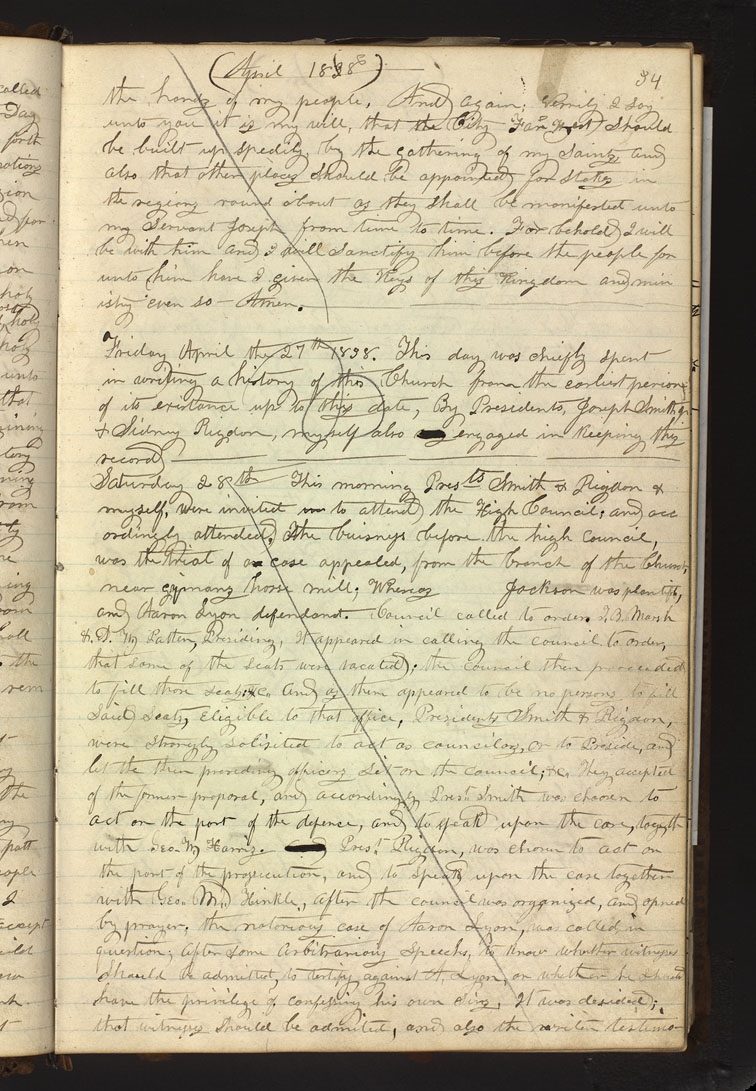 (April 1838)
34
the hands of my people. And again, verily I say
unto you it is my will, that the City Far West Should
be built up spedily by the gathering of my Saints, and
also that other places should be appointed for Stakes in
the regions round about as they shall be manifested unto
my Servant Joseph from time to time. For behold I will
be with him and I will Sanctify him before the people for
unto him have I given the Keys of this Kingdom and min
istry even so—Amen.
Friday April the 27th 1838. This day was chiefly spent
in writing a history of this Church from the earliest perion
of its existance up to this date, By Presidents, Joseph Smith, jr
& Sidney Rigdon, myself also engaged in Keeping this
record
Saturday 28th This morning Pres‘ts Smith & Rigdon &
myself, were invited to attend the High Council; and acc
ordingly attended, the buisness before the high council,
was the trial of a case appealed, from the branch of the Church,
near gymans horse mill; Whereas Jackson was plantiff,
and Aaron Lyon defendant. Council called to order. T. B. Marsh
& D. W. Patten, Presiding, It appeared in calling the council to order,
that some of the seats were vacated; the council then proceeded
to fill those seats, &c. And as there appeared to be no persons to fill
said Seats, Eligible to that office, Presidents Smith & Rigdon,
were strongly solisited to act as councilors, or to Preside, and
let the then presiding officers sit on the council; &c. They accepted
of the former proposal, and accordingly Prest. Smith was choosen to
act on the part of the defence, and to speak upon the case, togeth
with Geo. W. Harris. Prest. Rigdon, was chosen to act on
the part of the prosecution, and to speak upon the case together
with Geo. M. Hinkle, after the council was organized, and opened
by prayer; the notorious case of Aaron Lyon, was called in
question; After some arbitrarious Speeches, to know whether witneses
should be admitted, to testify against A. Lyon, or whether he should
have the privilege of confessing his own Sins, It was desided;
that witneses Should be admited, and also the writen testimo-